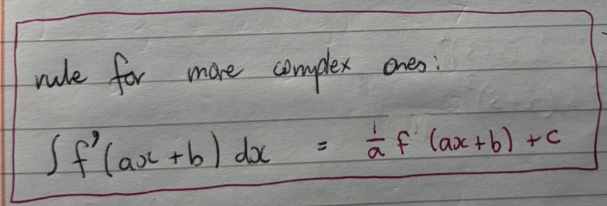 rule for more complex ones:
∫ f'(ax+b) dx = 1/a f (ax+b) + c